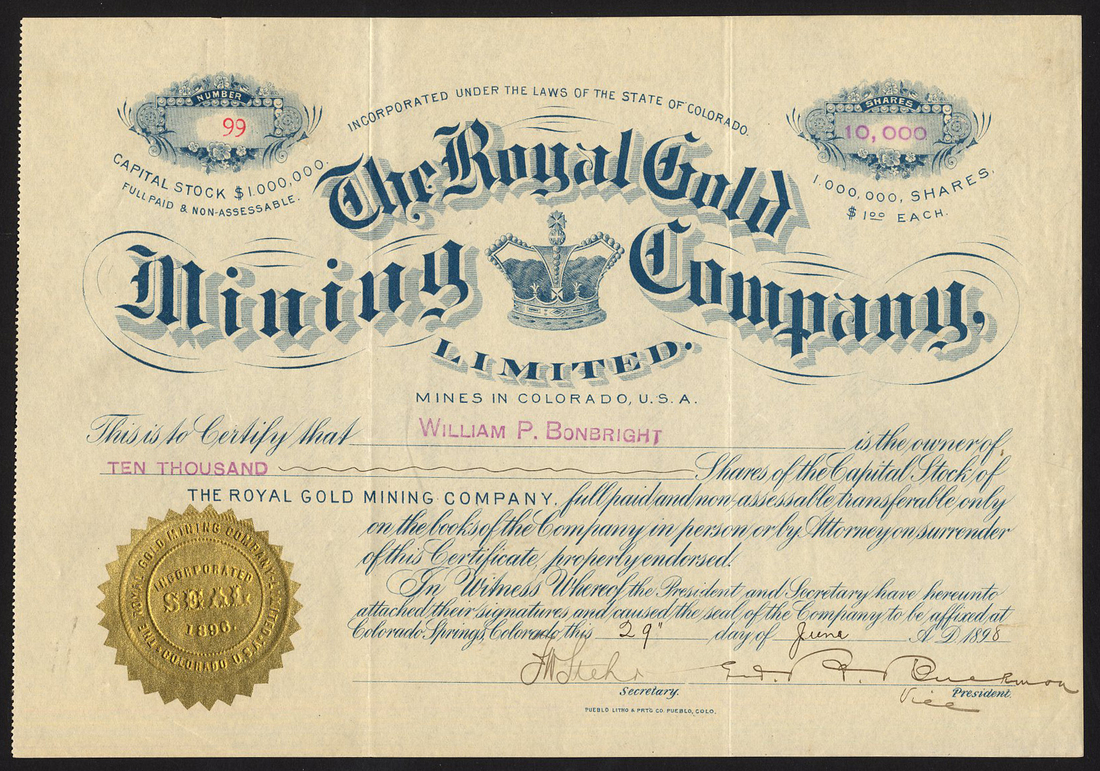 NUMBER
99
CAPITAL STOCK $1.000,000.
FULL PAID & NON-ASSESSABLE.
INCORPORATED UNDER THE LAWS OF THE STATE OF COLORADO.
SHARES
10,000
1.000,000, SHARES.
$1.00 EACH.
The Royal Gold
Mining Company,
LIMITED.
MINES IN COLORADO, U.S.A.
This is to Certify that WILLIAM P. BONBRIGHT is the owner of
TEN THOUSAND Shares of the Capital Stock of
THE ROYAL GOLD MINING COMPANY, full paid and non-assessable transferable only
on the books of the Company in person or by Attorney on surrender
of this Certificate, properly endorsed.
In Witness Whereof the President and Secretary have hereunto
attached their signatures and caused the seal of the Company to be affixed at
Colorado Springs, Colorado this 29" day of June A.D. 1898
THE ROYAL GOLD MINING COMPANY LIMITED
COLORADO U.S.A.
INCORPORATED
SEAL.
1896.
Secretary.
Vice President.
PUEBLO LITHO & PRT'G CO. PUEBLO, COLO.